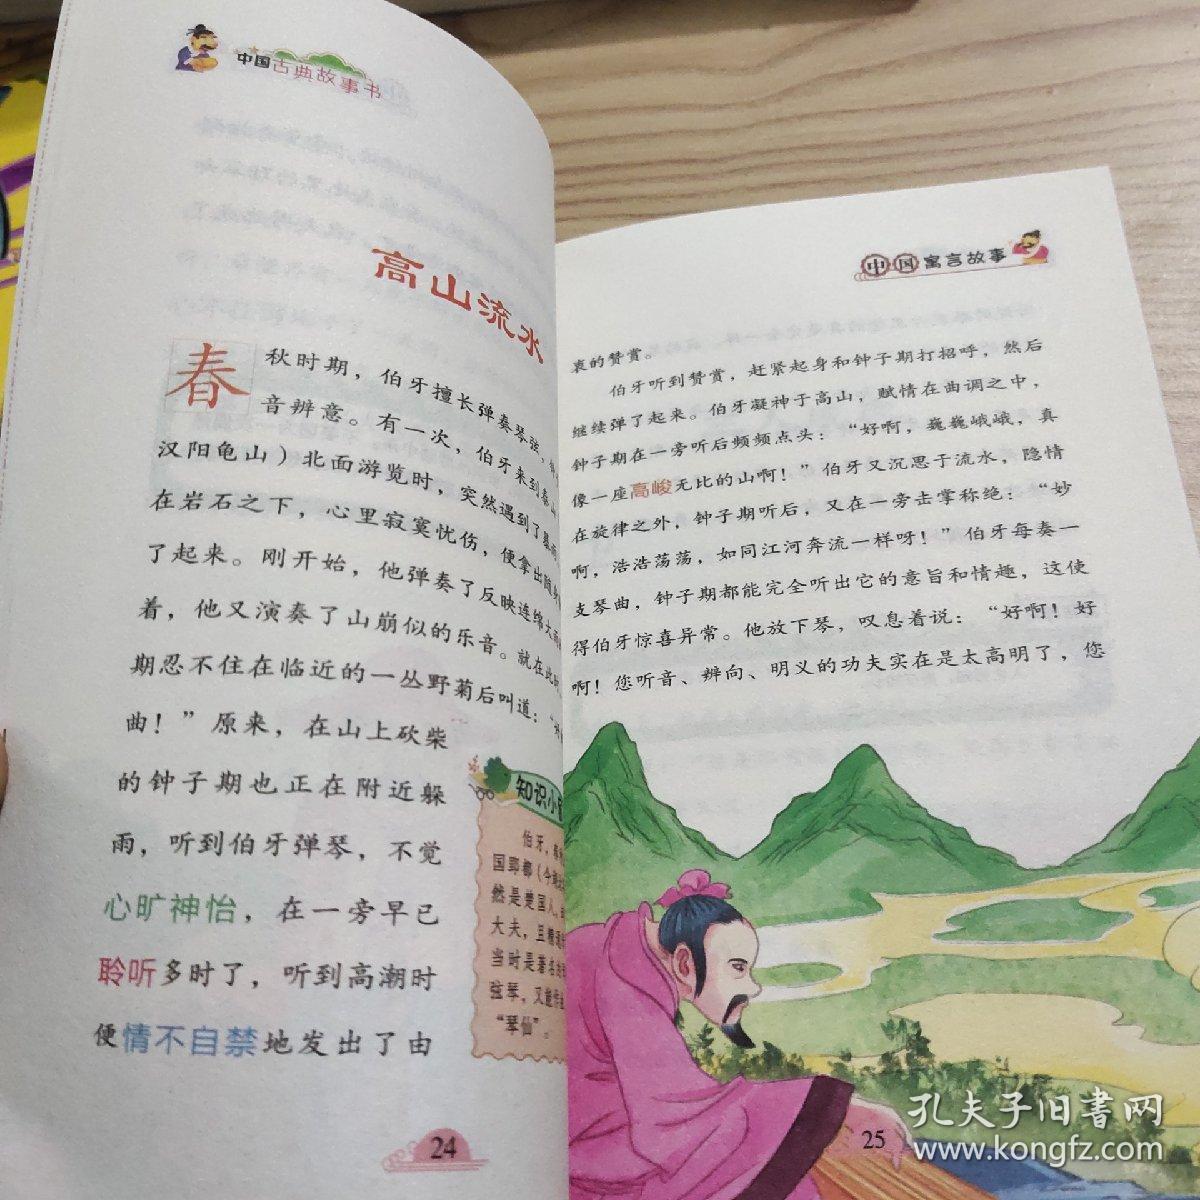 中国古典故事书
高山流水
春
秋时期，伯牙擅长弹奏琴弦，
音辨意。有一次，伯牙来到泰山
汉阳龟山）北面游览时，突然遇到了暴雨
在岩石之下，心里寂寞忧伤，便拿出随
了起来。刚开始，他弹奏了反映连绵大
着，他又演奏了山崩似的乐音。就在此时
期忍不住在临近的一丛野菊后叫道：“
曲！”原来，在山上砍柴
的钟子期也正在附近躲
雨，听到伯牙弹琴，不觉
心旷神怡，在一旁早已
聆听多时了，听到高潮时
便情不自禁地发出了由
知识小
伯牙，
国郢都（今
然是楚国人，
大夫，且精通
当时是著名的
弦琴，又能作
“琴仙”。
24
中国寓言故事
衷的赞赏。
伯牙听到赞赏，赶紧起身和钟子期打招呼，然后
继续弹了起来。伯牙凝神于高山，赋情在曲调之中，
钟子期在一旁听后频频点头：“好啊，巍巍峨峨，真
像一座高峻无比的山啊！”伯牙又沉思于流水，隐情
在旋律之外，钟子期听后，又在一旁击掌称绝：“妙
啊，浩浩荡荡，如同江河奔流一样呀！”伯牙每奏一
支琴曲，钟子期都能完全听出它的意旨和情趣，这使
得伯牙惊喜异常。他放下琴，叹息着说：“好啊！好
啊！您听音、辨向、明义的功夫实在是太高明了，您
25
孔夫子旧书网
www.kongfz.com